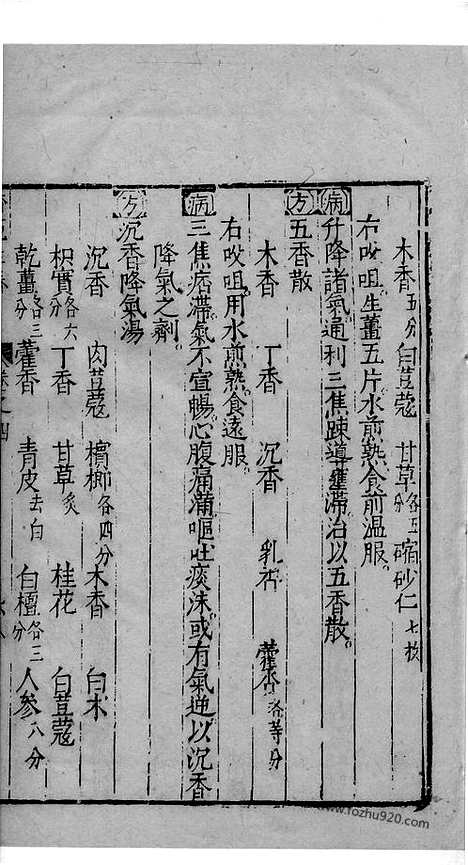 木香五分 白荳蔻 甘草各五分 縮砂仁七枚
右㕮咀生薑五片水煎熟食前温服
病 升降諸氣通利三焦踈導壅滯治以五香散
方 五香散
木香 丁香 沉香 乳香 藿香各等分
右㕮咀用水煎熟食遠服
病 三焦痞滯氣不宣暢心腹痛滿嘔吐痰沫或有氣逆以沉香
降氣之劑
方 沉香降氣湯
沉香 肉荳蔻 檳榔各四分 木香 白朮
枳實各六分 丁香 甘草炙 桂花 白荳蔻
乾薑各三分 藿香 青皮去白 白檀各三分 人參八分
卷之四
www.fozhu920.com